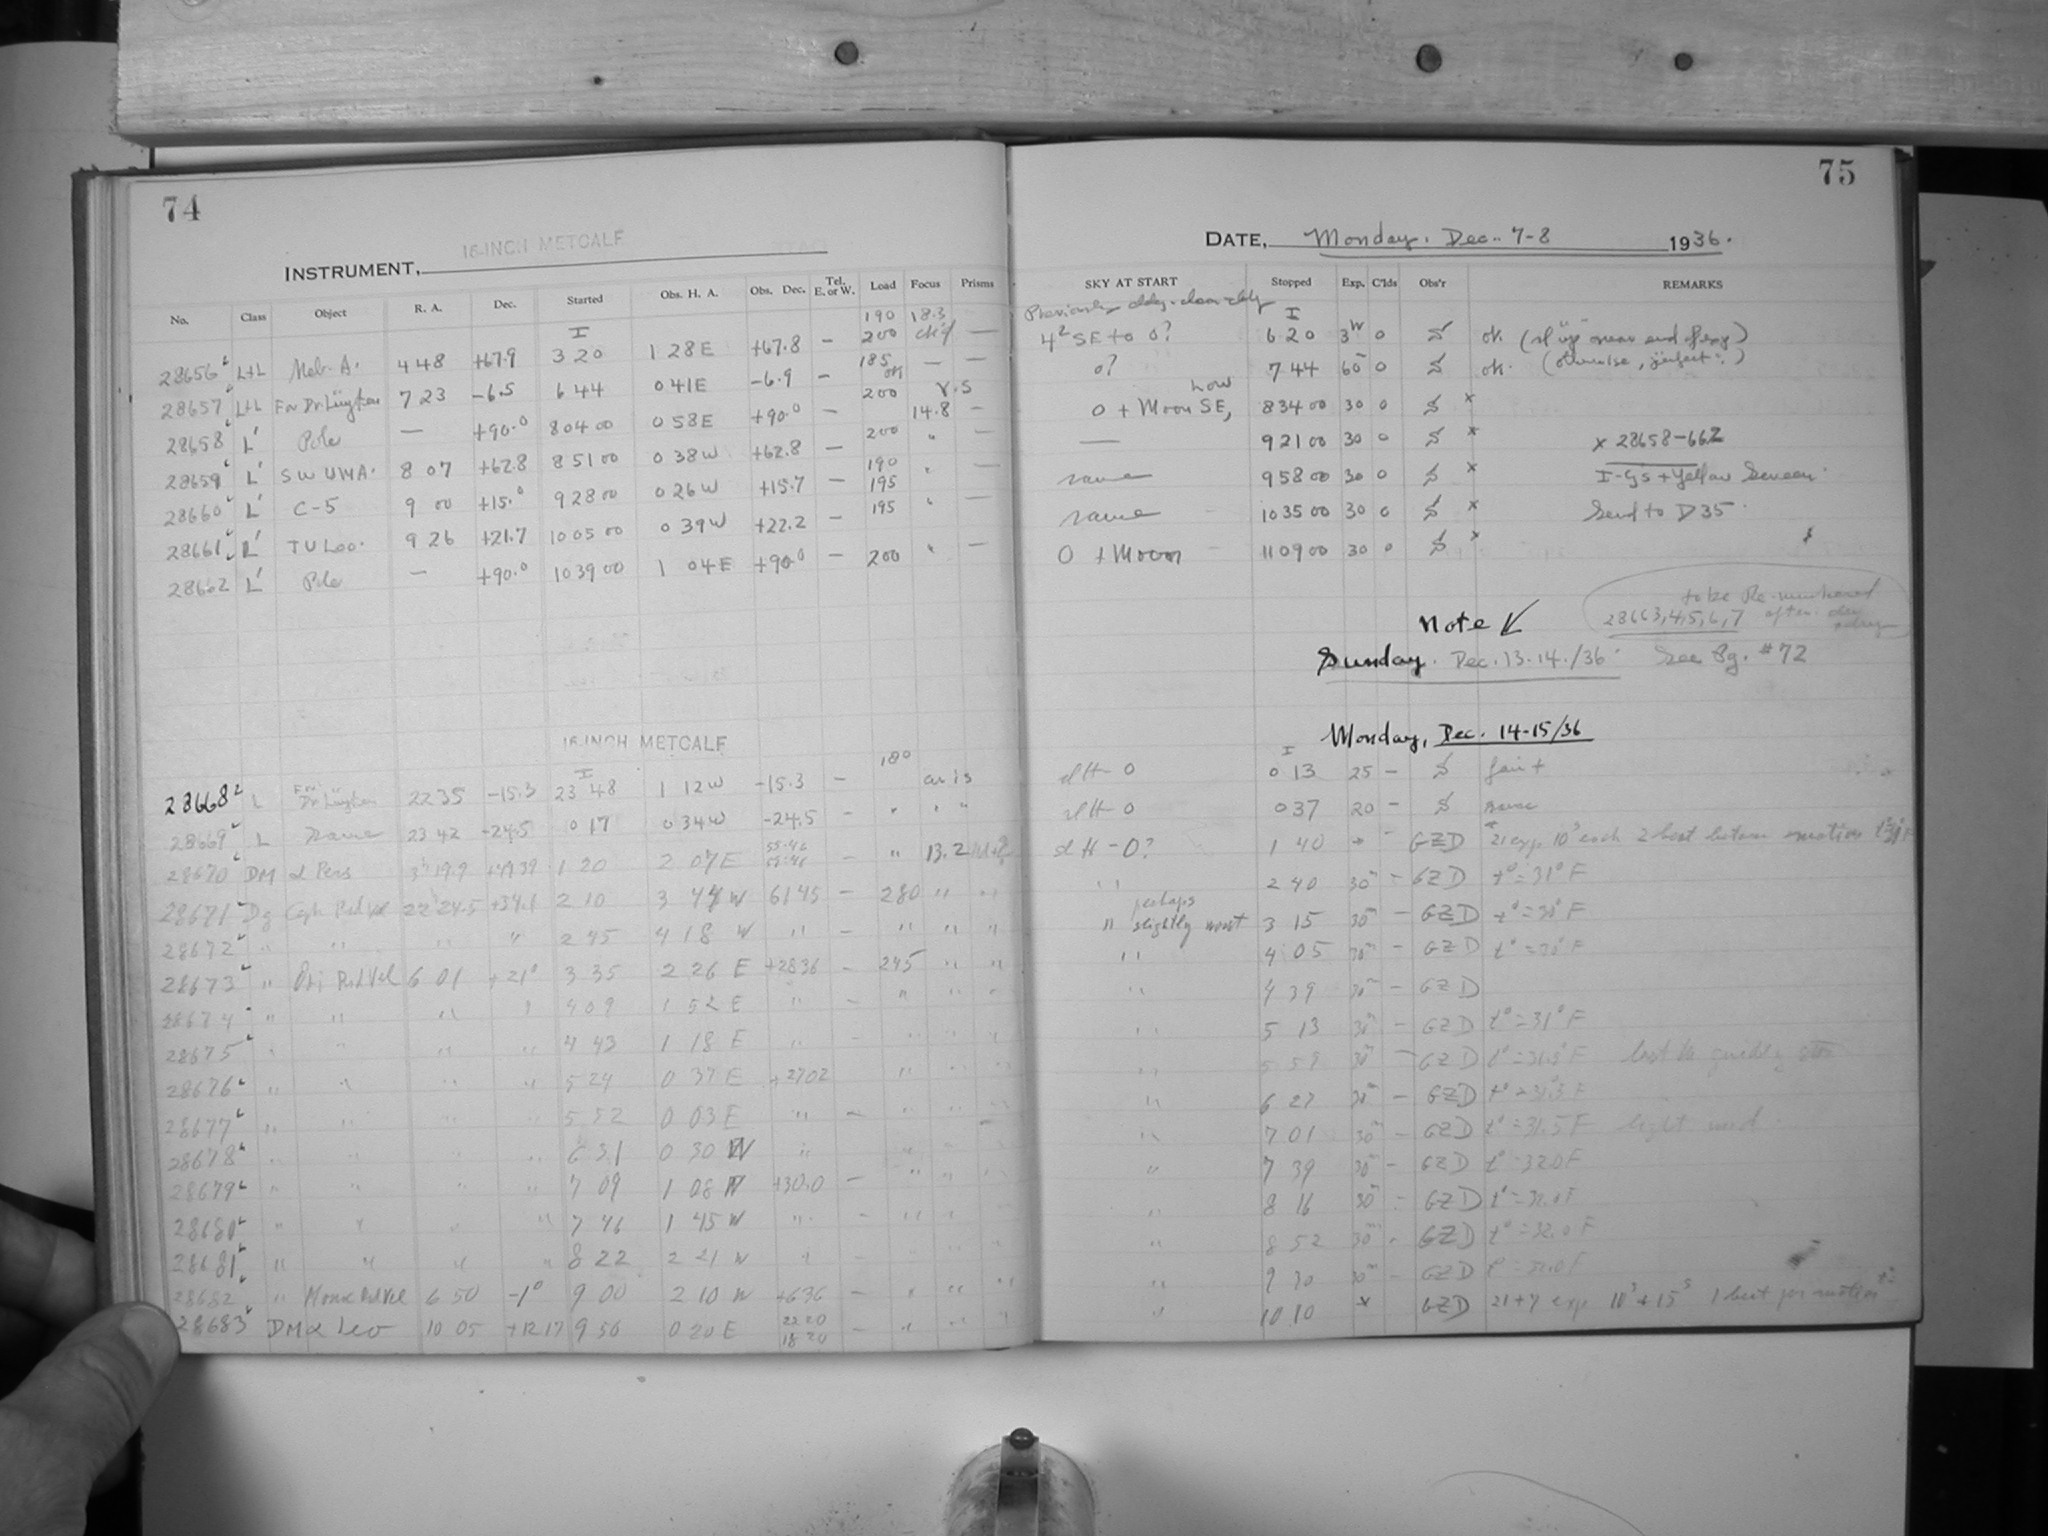 74
16-INCH METCALF
INSTRUMENT,
No. Class Object R. A. Dec. Started Obs. H. A. Obs. Dec. Tel. E. or W. Load Focus Prisms
I 190 18.3
28656 L+L Neb. A. 4 48 +67.9 3 20 1 28 E +67.8 – 200 ck'd —
28657 L+L For Dr Luyten 7 23 -6.5 6 44 0 41 E -6.9 – 185 ok — —
28658 L' Pole — +90.0 8 04 00 0 58 E +90.0 – 200 14.8 –
28659 L' SW UMA. 8 07 +62.8 8 51 00 0 38 W +62.8 – 200 " –
28660 L' C-5 9 00 +15.0 9 28 00 0 26 W +15.7 – 190 195 " –
28661 L' TU Leo. 9 26 +21.7 10 05 00 0 39 W +22.2 – 195 " –
28662 L' Pole — +90.0 10 39 00 1 04 E +90.0 – 200 " –
16-INCH METCALF
I 180
28668 L For Dr Luyten 22 35 -15.3 23 48 1 12 W -15.3 – as is
28669 L Same 23 42 -24.5 0 17 0 34 W -24.5 – " " "
28670 DM α Pers 3h 19.9 +49 39 1 20 2 07 E – " 13.2
28671 Dg Ceph Rad Vel 22h 24.5 2 10 3 44 W 61 45 – 280 " "
28672 " " " " 2 45 4 18 W " – " " "
28673 " Ori Rad Vel 6 01 +21° 3 35 2 26 E +28 36 – 245 " "
28674 " " " " 4 09 1 52 E " – " " "
28675 " " " " 4 43 1 18 E " – " " "
28676 " " " " 5 24 0 37 E +27 02 " " "
28677 " " " " 5 52 0 03 E " – " " "
28678 " " " " 6 31 0 30 W " "
28679 " " " " 7 09 1 08 W +30.0 – " " "
28680 " " " " 7 46 1 45 W " – " " "
28681 " " " " 8 22 2 21 W " – " " "
28682 " Monoc Rad Vel 6 50 -1° 9 00 2 10 W +6 36 – " " "
28683 DM α Leo 10 05 +12 17 9 50 0 20 E 22 20 18 20 – " " "
75
DATE, Monday. Dec. 7-8 1936.
SKY AT START Stopped Exp. C'lds Obs'r REMARKS
Previously cldy-clear-cldy I
4² SE to 0? 6 20 3 0 S ok (
0? 7 44 60 0 S ok. (otherwise, perfect!)
0 + Moon SE, low 8 34 00 30 0 S x
— 9 21 00 30 0 S x x 28658-662
same 9 58 00 30 0 S x I-Gs + Yellow Screen
same 10 35 00 30 0 S x Send to D 35
0 + Moon 11 09 00 30 0 S x
to be Re-numbered
28663,4,5,6,7 after
Note
Sunday. Dec. 13-14./36 See Pg. #72
Monday, Dec. 14-15/36
I
0 0 13 25 – S faint
0 0 37 20 – S same
0? 1 40 * – GZD * 21 exp. 10s each 2 best
" 2 40 30m – GZD t° = 31° F
" perhaps slightly moist 3 15 30m – GZD t° = 30° F
" 4 05 30m – GZD t° = 30° F
" 4 39 30m – GZD
" 5 13 30m – GZD t° = 31° F
" 5 59 30m – GZD
" 6 27 30m – GZD
" 7 01 30m – GZD t° = 31.5 F light wind
" 7 39 30m – GZD t° 32.0 F
" 8 16 30m – GZD t° = 32.0 F
" 8 52 30m – GZD t° = 32.0 F
" 9 30 30m – GZD t° = 32.0 F
" 10 10 * GZD 21+7 exp 10s + 15s 1 best per